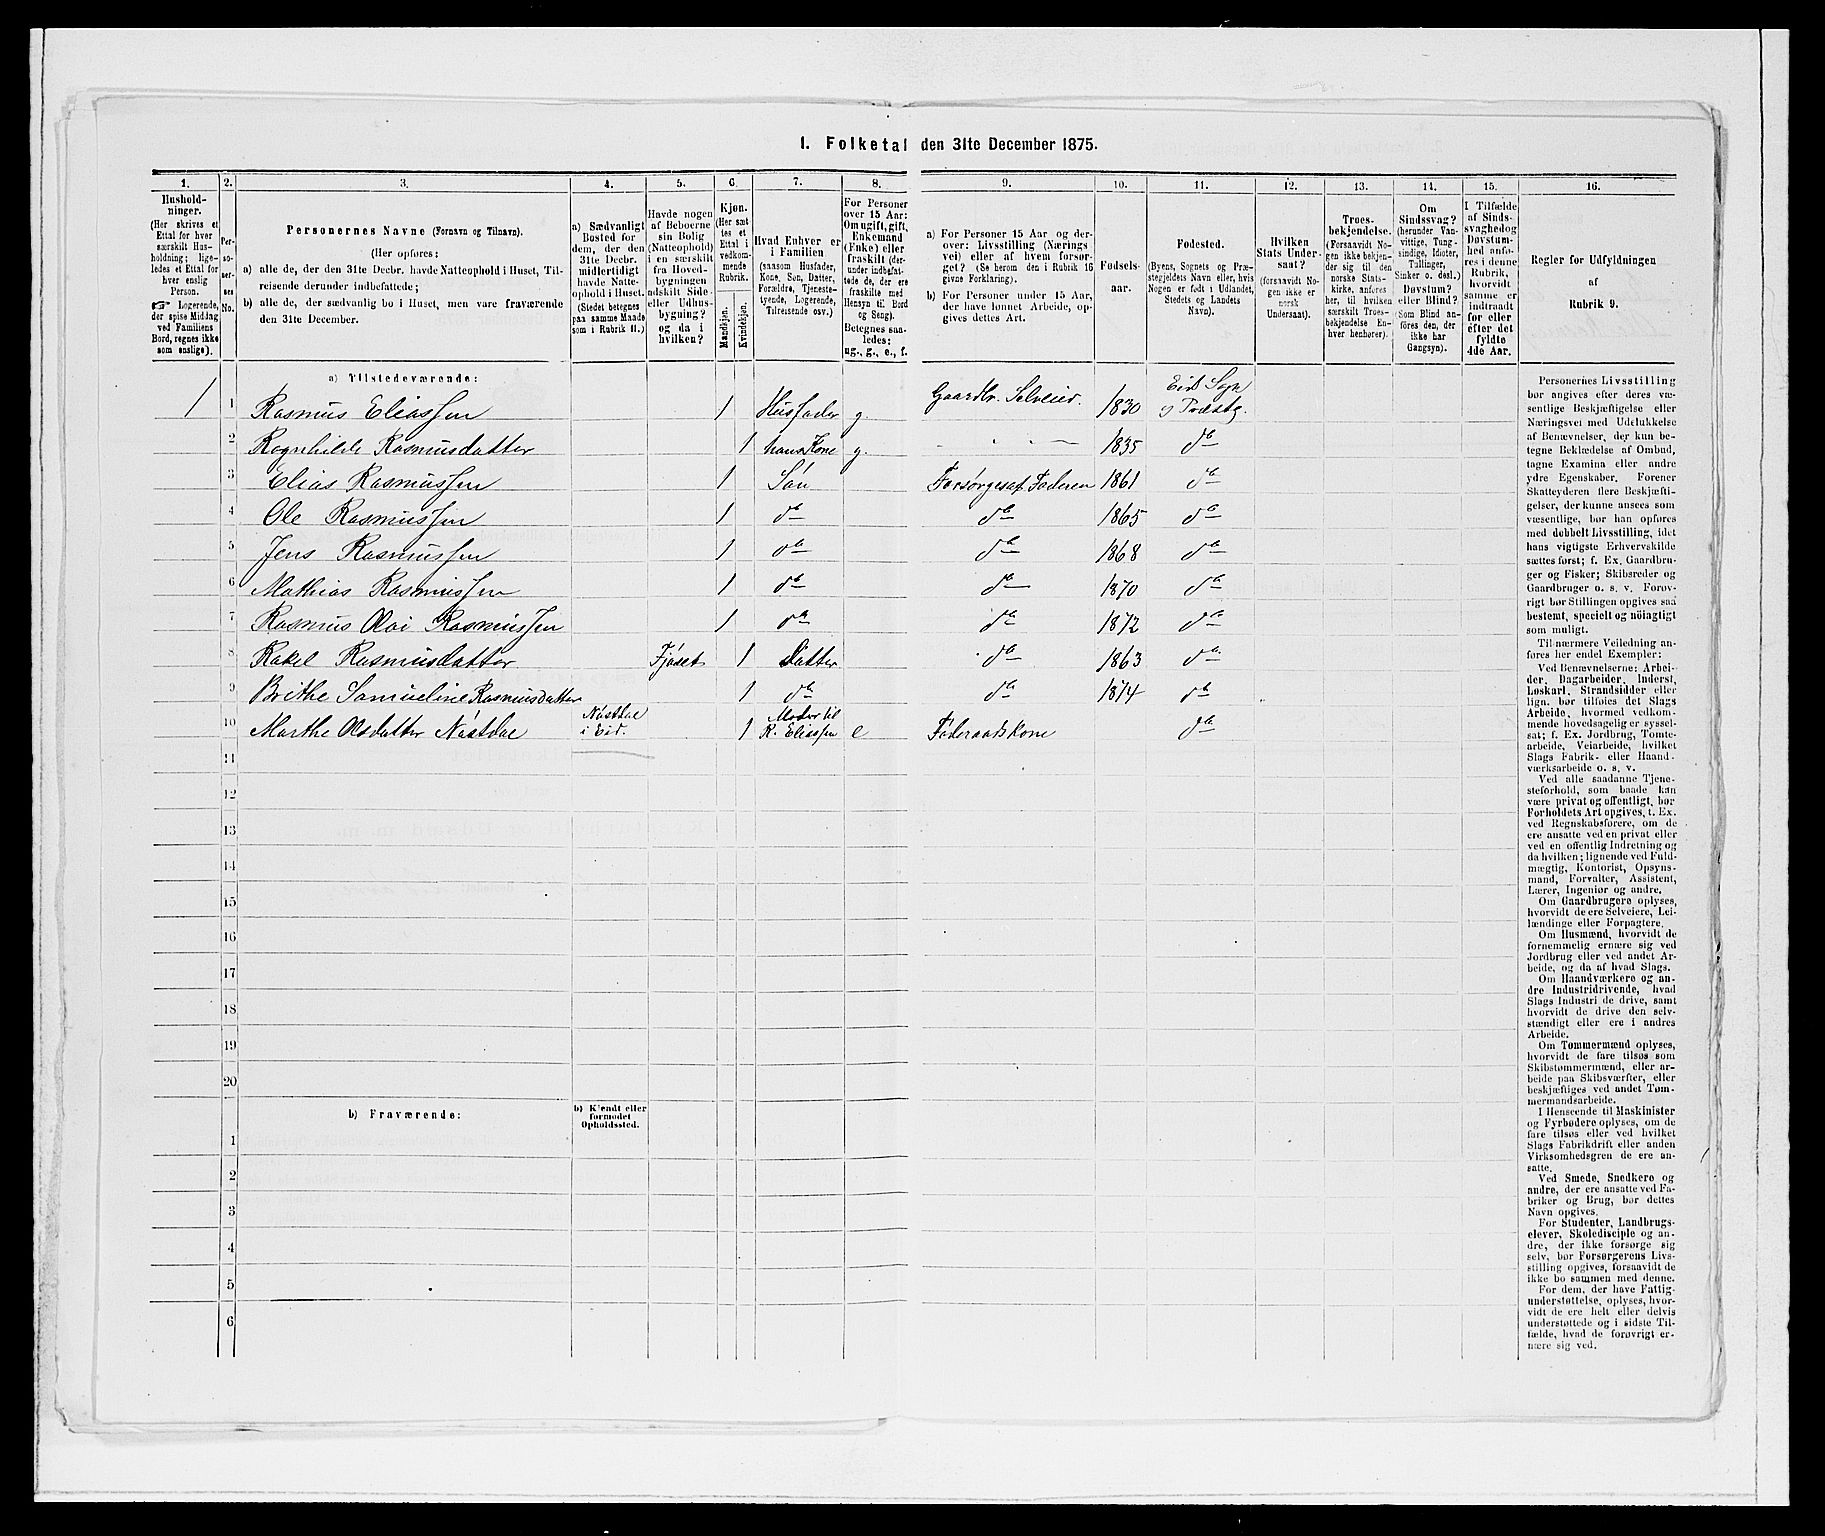 I. Folketal den 31te December 1875.
1. 2. 3. 4. 5. 6. 7. 8. 9. 10. 11. 12. 13. 14. 15. 16.
Hushold-
ninger.
(Her skrives et
Ettal for hver
særskilt Hus-
holdning; lige-
ledes et Ettal for
hver enslig
Person.
☞ Logerende,
der spise Middag
ved Familiens
Bord, regnes ikke
som enslige).
Per-
so-
ner-
nes
No.
Personernes Navne (Fornavn og Tilnavn).
(Her opføres:
a) alle de, der den 31te Decbr. havde Natteophold i Huset, Til-
reisende derunder indbefattede;
b) alle de, der sædvanlig bo i Huset, men vare fraværende
den 31te December.
a) Sædvanligt
Bosted for
dem, der den
31te Decbr.
midlertidigt
havde Natte-
ophold i Huset.
(Stedet betegnes
paa samme Maade
som i Rubrik 11.)
Havde nogen
af Beboerne
sin Bolig
(Natteophold)
i en særskilt
fra Hoved-
bygningen
adskilt Side-
eller Udhus-
bygning?
og da i
hvilken?
Kjøn.
(Her sæt
tes et
Ettal i
vedkom-
mende
Rubrik.
Mandkjøn.
Kvindekjøn.
Hvad Enhver er
i Familien
(saasom Husfader,
Kone, Søn, Datter,
Forældre, Tjeneste-
tyende, Logerende,
Tilreisende osv.)
For Personer
over 15 Aar:
Om ugift, gift,
Enkemand
(Enke) eller
fraskilt (der-
under indbefat-
tede de, der ere
fraskilte med
Hensyn til Bord
og Seng).
Betegnes saa-
ledes:
ug., g., e., f.
a) For Personer 15 Aar og der-
over: Livsstilling (Nærings-
vei) eller af hvem forsør-
get? (Se herom den i Rubrik 16
givne Forklaring).
b) For Personer under 15 Aar,
der have lønnet Arbeide, op-
gives dettes Art.
Fødsels-
aar.
Fødested.
(Byens, Sognets og Præ-
stegjeldets Navn eller, hvis
Nogen er født i Udlandet,
Stedets og Landets
Navn).
Hvilken
Stats Under-
saat?
(forsaavidt No-
gen ikke er
norsk
Undersaat).
Troes-
bekjendelse.
(Forsaavidt No-
gen ikke bekjen-
der sig til den
norske Stats-
kirke, anføres
her, til hvilken
særskilt Troes-
bekjendelse En-
hver henhører).
Om
Sindssvag?
(herunder Van-
vittige, Tung-
sindige, Idioter,
Tullinger,
Sinker o. desl.)
Døvstum?
eller Blind?
(Som Blind an-
føres den, der
ikke har
Gangsyn).
I Tilfælde
af Sinds-
svaghed og
Døvstum-
hed anfø-
res i denne
Rubrik,
hvorvidt
samme er
indtraadt
før eller
efter det
fyldte
4de Aar.
Regler for Udfyldningen
af
Rubrik 9.
a) Tilstedeværende:
1 1 Rasmus Eliassen 1 Husfader g. Gaardbr. Selveier. 1830 Eid Sogn
og Præstg.
2 Rognhilde Rasmusdatter 1 hans Kone g. 1835 do
3 Elias Rasmussen 1 Søn Forsørges af Faderen 1861 do
4 Ole Rasmussen 1 do do 1865 do
5 Jens Rasmussen 1 do do 1868 do
6 Mathias Rasmussen 1 do do 1870 do
7 Rasmus Olai Rasmussen 1 do do 1872 do
8 Rakel Rasmusdatter Fjøset 1 Datter do 1863 do
9 Brithe Samueline Rasmusdatter 1 do do 1874 do
10 Marthe Olsdatter Nøstdal Nøstdal
i Eid. 1 Moder til
R. Eliassen e Føderaadskone do
11
12
13
14
15
16
17
18
19
20
b) Fraværende:
b) Kjendt eller
formodet
Opholdssted.
1
2
3
4
5
6
Personernes Livsstilling
bør angives efter deres væ-
sentlige Beskjæftigelse eller
Næringsvei med Udelukkelse
af Benævnelser, der kun be-
tegne Beklædelse af Ombud,
tagne Examina eller andre
ydre Egenskaber. Forener
Skatteyderen flere Beskjæfti-
gelser, der kunne ansees som
væsentlige, bør han opføres
med dobbelt Livsstilling, idet
hans vigtigste Erhvervskilde
sættes først; f. Ex. Gaardbru-
ger og Fisker; Skibsreder og
Gaardbruger o. s. v. Forøv-
rigt bør Stillingen opgives saa
bestemt, specielt og nøiagtigt
som muligt.
Til nærmere Veiledning an-
føres her endel Exempler:
Ved Benævnelserne: Arbei-
der, Dagarbeider, Inderst,
Løskarl, Strandsidder eller
lign. bør tilføies det Slags
Arbeide, hvormed vedkom-
mende hovedsagelig er syssel-
sat; f. Ex. Jordbrug, Tomte-
arbeide, Veiarbeide, hvilket
Slags Fabrik- eller Haand-
værksarbeide o. s. v.
Ved alle saadanne Tjene-
steforhold, som baade kan
være privat og offentligt, bør
Forholdets Art opgives, t. Ex.
ved Regnskabsførere, om de
ere ansatte ved en privat eller
ved en offentlig Indretning og
da hvilken; lignende ved Fuld-
mægtig, Kontorist, Opsyns-
mand, Forvalter, Assistent,
Lærer, Ingeniør og andre.
Om Gaardbrugere oplyses,
hvorvidt de ere Selveiere, Lei-
lændinge eller Forpagtere.
Om Husmænd, hvorvidt de
fornemmelig ernære sig ved
Jordbrug eller ved andet Ar-
beide, og da af hvad Slags.
Om Haandværkere og an-
dre Industridrivende, hvad
Slags Industri de drive, samt
hvorvidt de drive den selv-
stændigt eller ere i andres
Arbeide.
Om Tømmermænd oplyses,
hvorvidt de fare tilsøs som
Skibstømmermænd, eller ar-
beide paa Skibsværfter, eller
beskjæftiges ved andet Tøm-
mermandsarbeide.
I Henseende til Maskinister
og Fyrbødere oplyses, om de
fare tilsøs eller ved hvilket
Slags Fabrikdrift eller anden
Virksomhedsgren de ere an-
satte.
Ved Smede, Snedkere og
andre, der ere ansatte ved Fa-
briker og Brug, bør dettes
Navn opgives.
For Studenter, Landbrugs-
elever, Skoledisciple og an-
dre, der ikke forsørge sig
selv, bør Forsørgerens Livs-
stilling opgives, forsaavidt de
ikke bo sammen med denne.
For dem, der have Fattig-
understøttelse, oplyses, hvor-
vidt de ere helt eller delvis
understøttede og i sidste Til-
fælde, hvad de forøvrigt er-
nære sig ved.